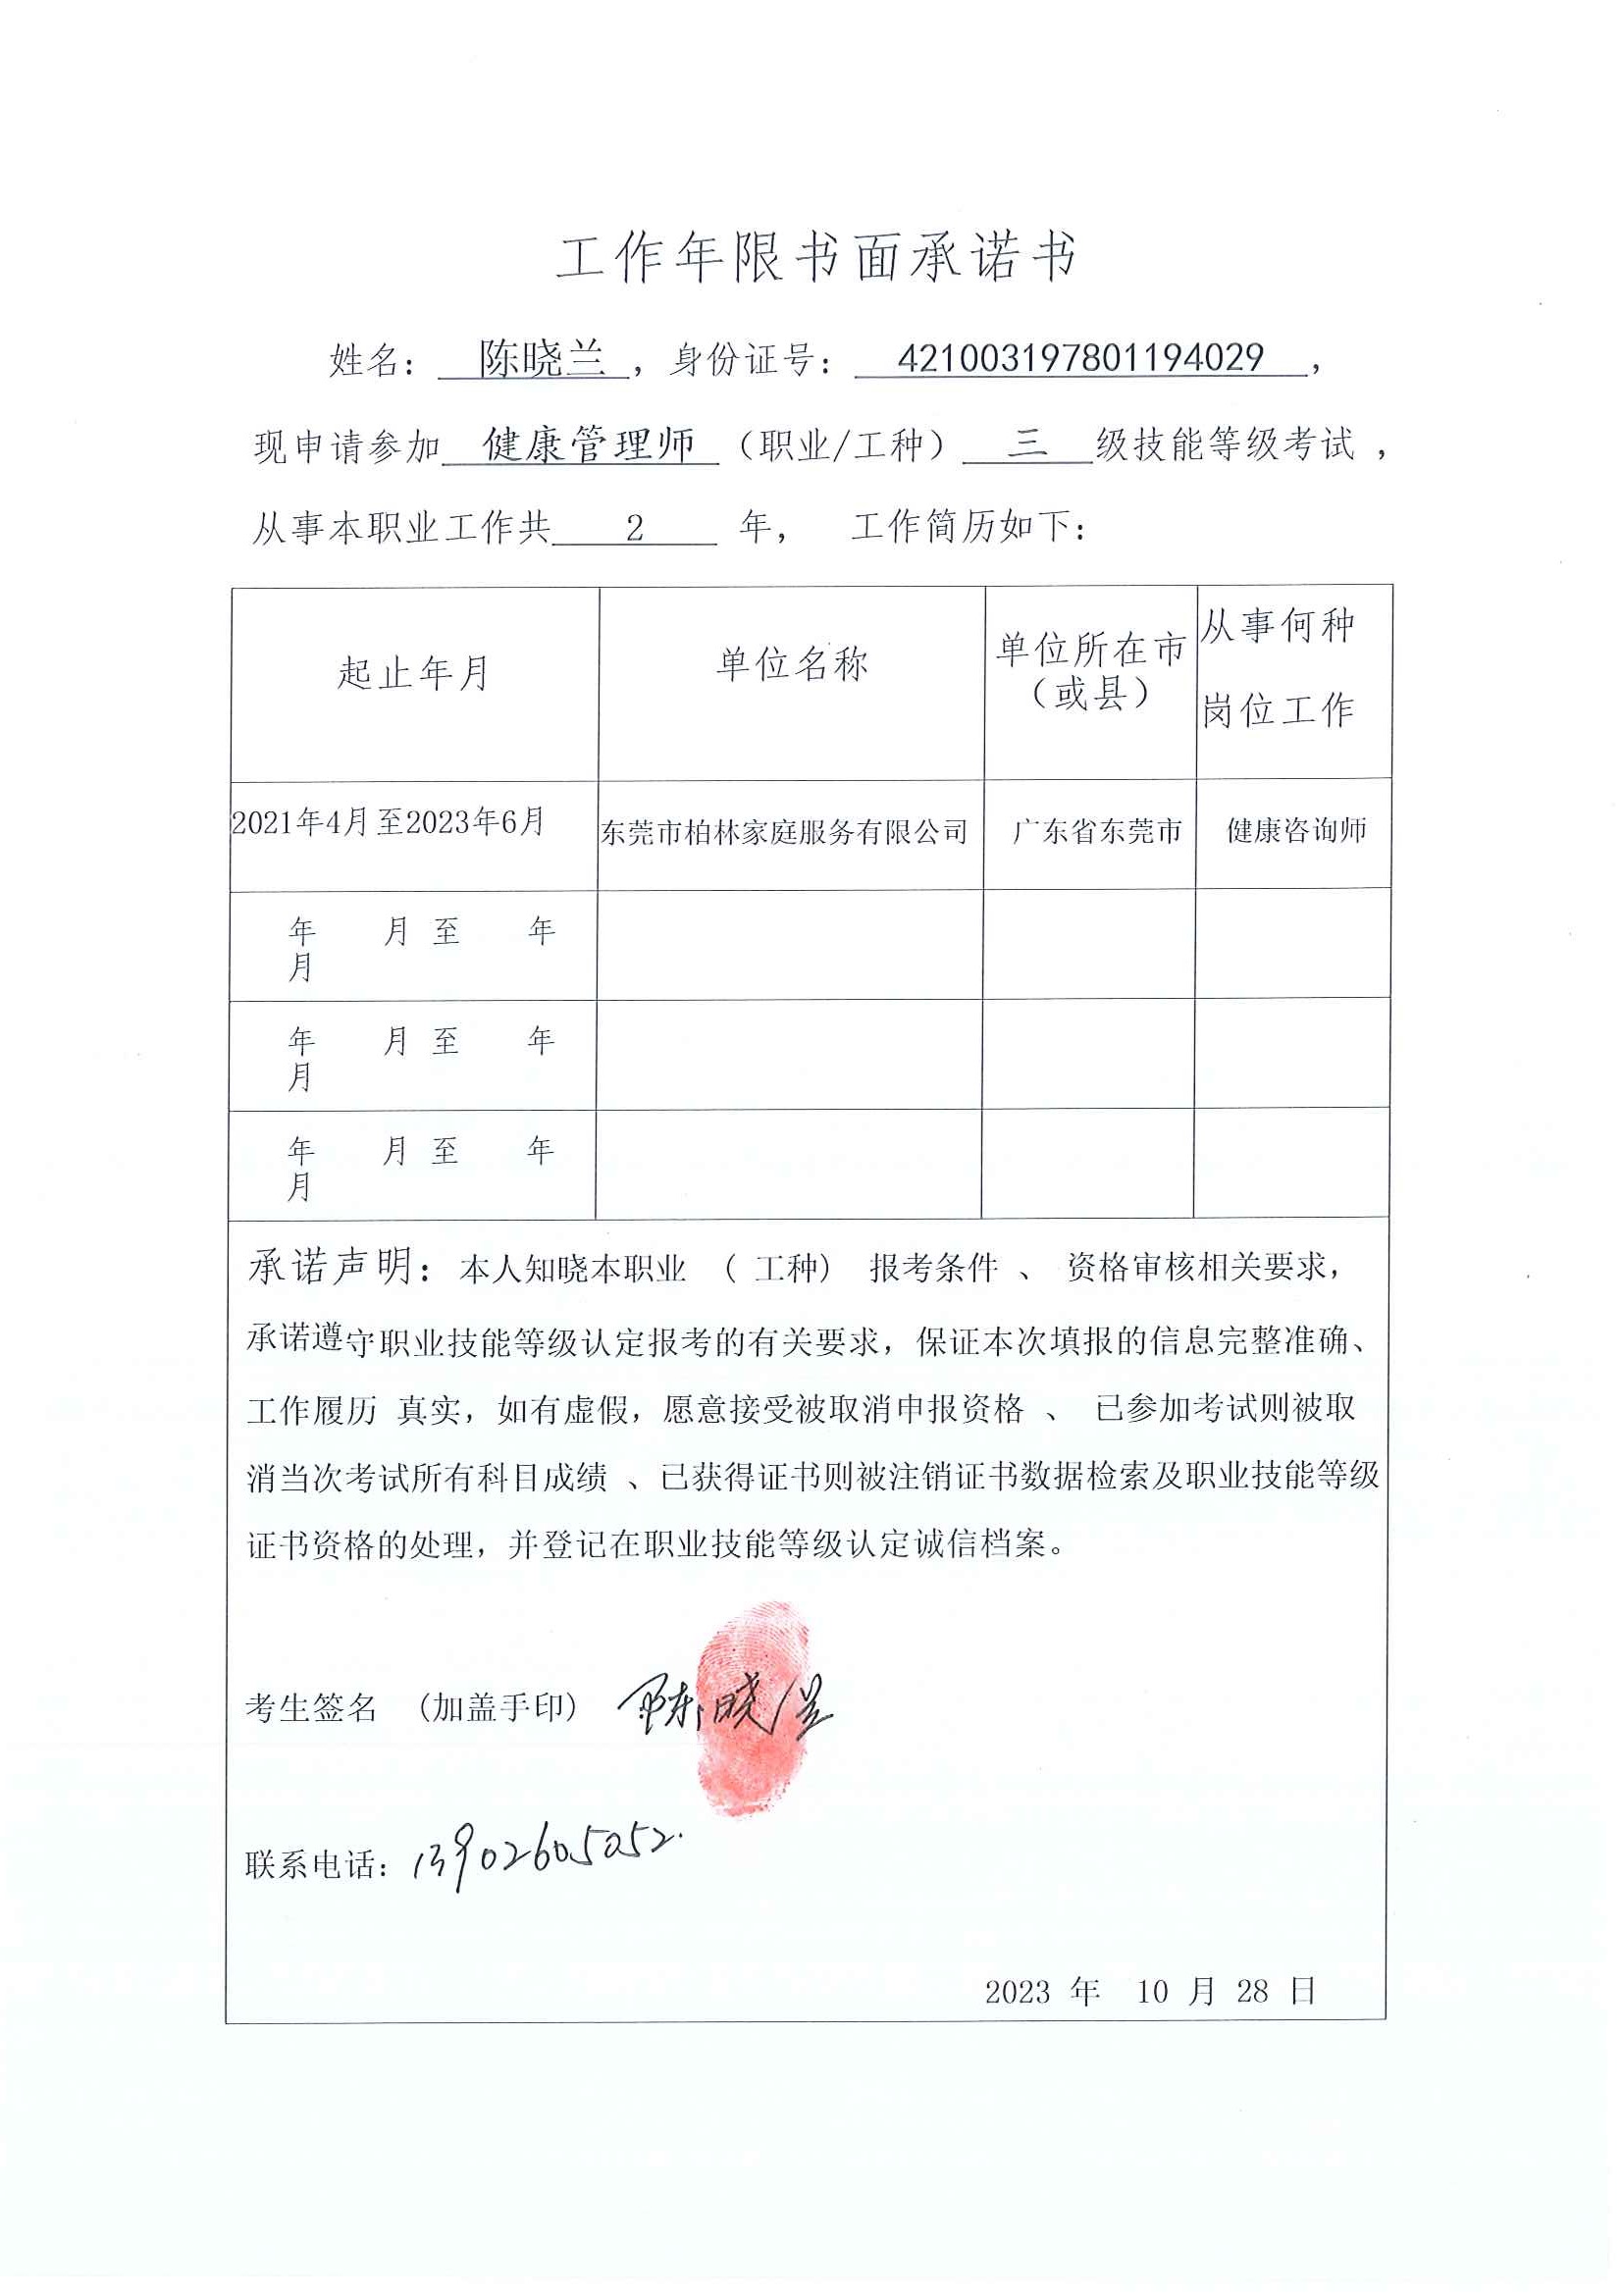 工作年限书面承诺书
姓名： 陈晓兰 ，身份证号： 421003197801194029 ，
现申请参加 健康管理师 （职业/工种） 三 级技能等级考试 ，
从事本职业工作共 2 年， 工作简历如下：
起止年月 单位名称 单位所在市（或县） 从事何种岗位工作
2021年4月至2023年6月 东莞市柏林家庭服务有限公司 广东省东莞市 健康咨询师
年 月 至 年
月
年 月 至 年
月
年 月 至 年
月
承诺声明：本人知晓本职业 （ 工种） 报考条件 、 资格审核相关要求，
承诺遵守职业技能等级认定报考的有关要求，保证本次填报的信息完整准确、
工作履历 真实，如有虚假，愿意接受被取消申报资格 、 已参加考试则被取
消当次考试所有科目成绩 、已获得证书则被注销证书数据检索及职业技能等级
证书资格的处理，并登记在职业技能等级认定诚信档案。
考生签名 （加盖手印） 陈晓兰
联系电话：13902605052.
2023 年 10 月 28 日